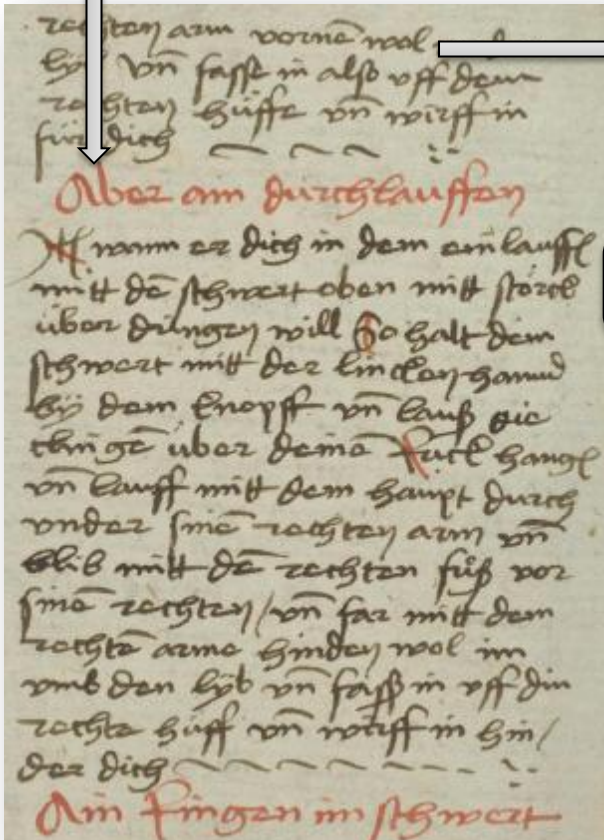 rechten arm vornē wol
lyb vn̄ fasse in also vff dem
rechten hüffe vn̄ wirff in
für dich
Aber ain durchlauffen
wann er dich in dem einlauffē
mitt dē schwert oben mitt störck
über dringen will So halt dein
schwert mitt der lincken hannd
by dem knopff vn̄ lauß die
clingē über deinē Ruck hangē
vn̄ lauff mitt dem haupt durch
vnder sinē rechten arm vn̄
blib mitt dē rechten fuß vor
sinē rechten / vn̄ far mitt dem
rechtē arme hinden wol im
vmb den lyb vn̄ fasß in vff din
rechte hüff vn̄ wirff in hin/
der dich
Ain Ringen im schwert